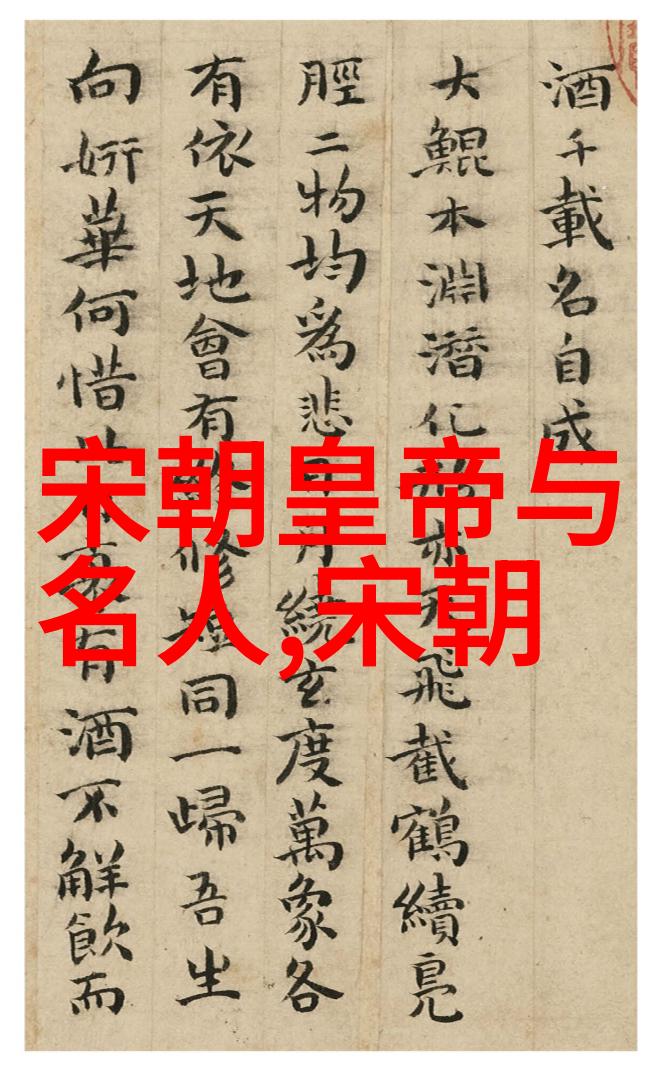 酒千載名自成
大鯤本淵潛化亦飛截鶴續鳧
脛二物均爲悲日月繞玄度萬象各
有依天地會有終修短同一歸吾生
向妍華何惜有酒不解飲而
宋朝皇帝与
名人,宋朝